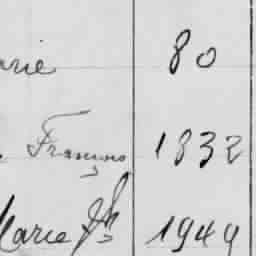 arie 80
François 1832
Marie Jh 1949